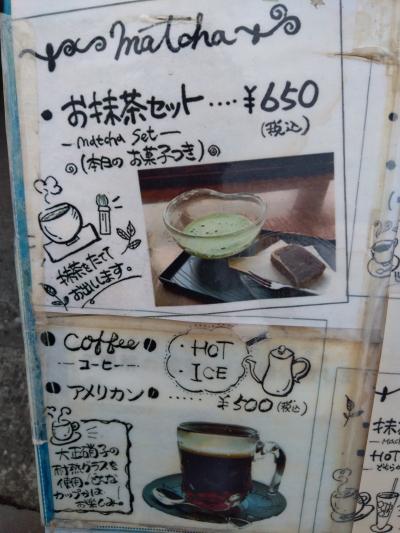 matcha
・お抹茶セット‥‥¥650
-matcha set- (税込)
(本日のお菓子つき)
抹茶をたてて
お出しします。
Coffee
-コーヒー-
・HOT
・ICE
アメリカン ‥‥‥ ¥500(税込)
大正硝子の
耐熱グラスを
使用。
カップかは
抹
HOT